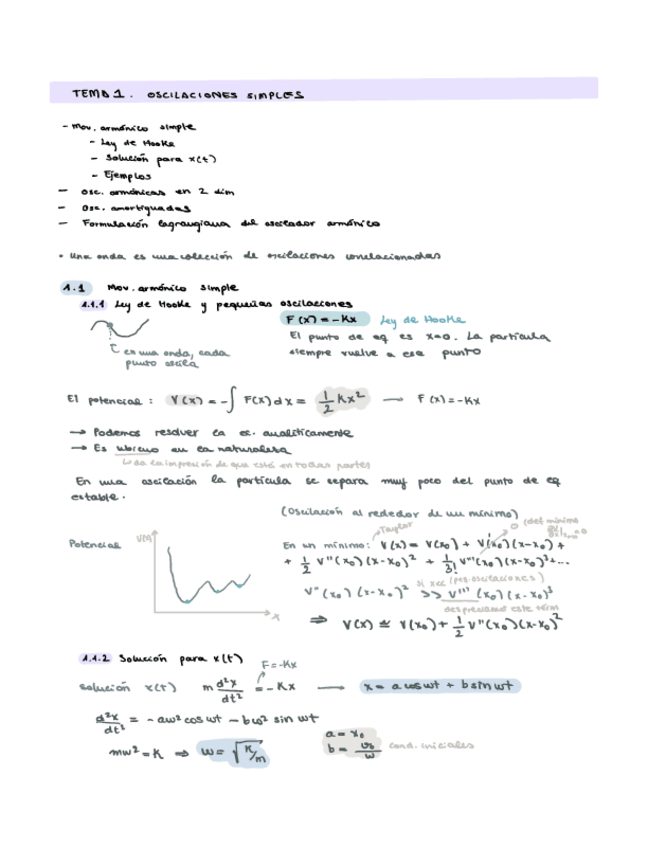 TEMA 1. OSCILACIONES SIMPLES
- Mov. armónico simple
- Ley de Hooke
- Solución para x(t)
- Ejemplos
- Osc. armónicas en 2 dim
- Osc. amortiguadas
- Formulación lagrangiana del oscilador armónico
• Una onda es una colección de oscilaciones correlacionadas
1.1 Mov. armónico simple
1.1.1 Ley de Hooke y pequeñas oscilaciones
F(x) = -Kx Ley de Hooke
El punto de eq es x=0. La partícula
siempre vuelve a ese punto
en una onda, cada
punto oscila
El potencial: V(x) = -∫ F(x)dx = 1/2 Kx² → F(x) = -Kx
→ Podemos resolver la ec. analíticamente
→ Es ubicuo en la naturaleza
↳ da la impresión de que está en todas partes
En una oscilación la partícula se separa muy poco del punto de eq
estable.
(Oscilación al rededor de un mínimo)
Taylor
0 (def mínimo
Potencial V(x) x
En un mínimo: V(x) = V(x₀) + V'(x₀)(x-x₀) +
+ 1/2 V''(x₀)(x-x₀)² + 1/3! V'''(x₀)(x-x₀)³+...
si x<< (peq. oscilaciones)
V''(x₀)(x-x₀)² >> V'''(x₀)(x-x₀)³
despreciamos este térm
⇒ V(x) ≃ V(x₀) + 1/2 V''(x₀)(x-x₀)²
1.1.2 Solución para x(t)
F=-Kx
solución x(t) m d²x/dt² = -Kx → x = a cos wt + b sin wt
d²x/dt² = - aw² cos wt - bw² sin wt
mw² = K ⇒ w = √K/m
a = x₀
b = v₀/w cond. iniciales